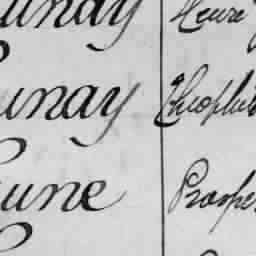 unay Henri
unay Théophile
une Prosper